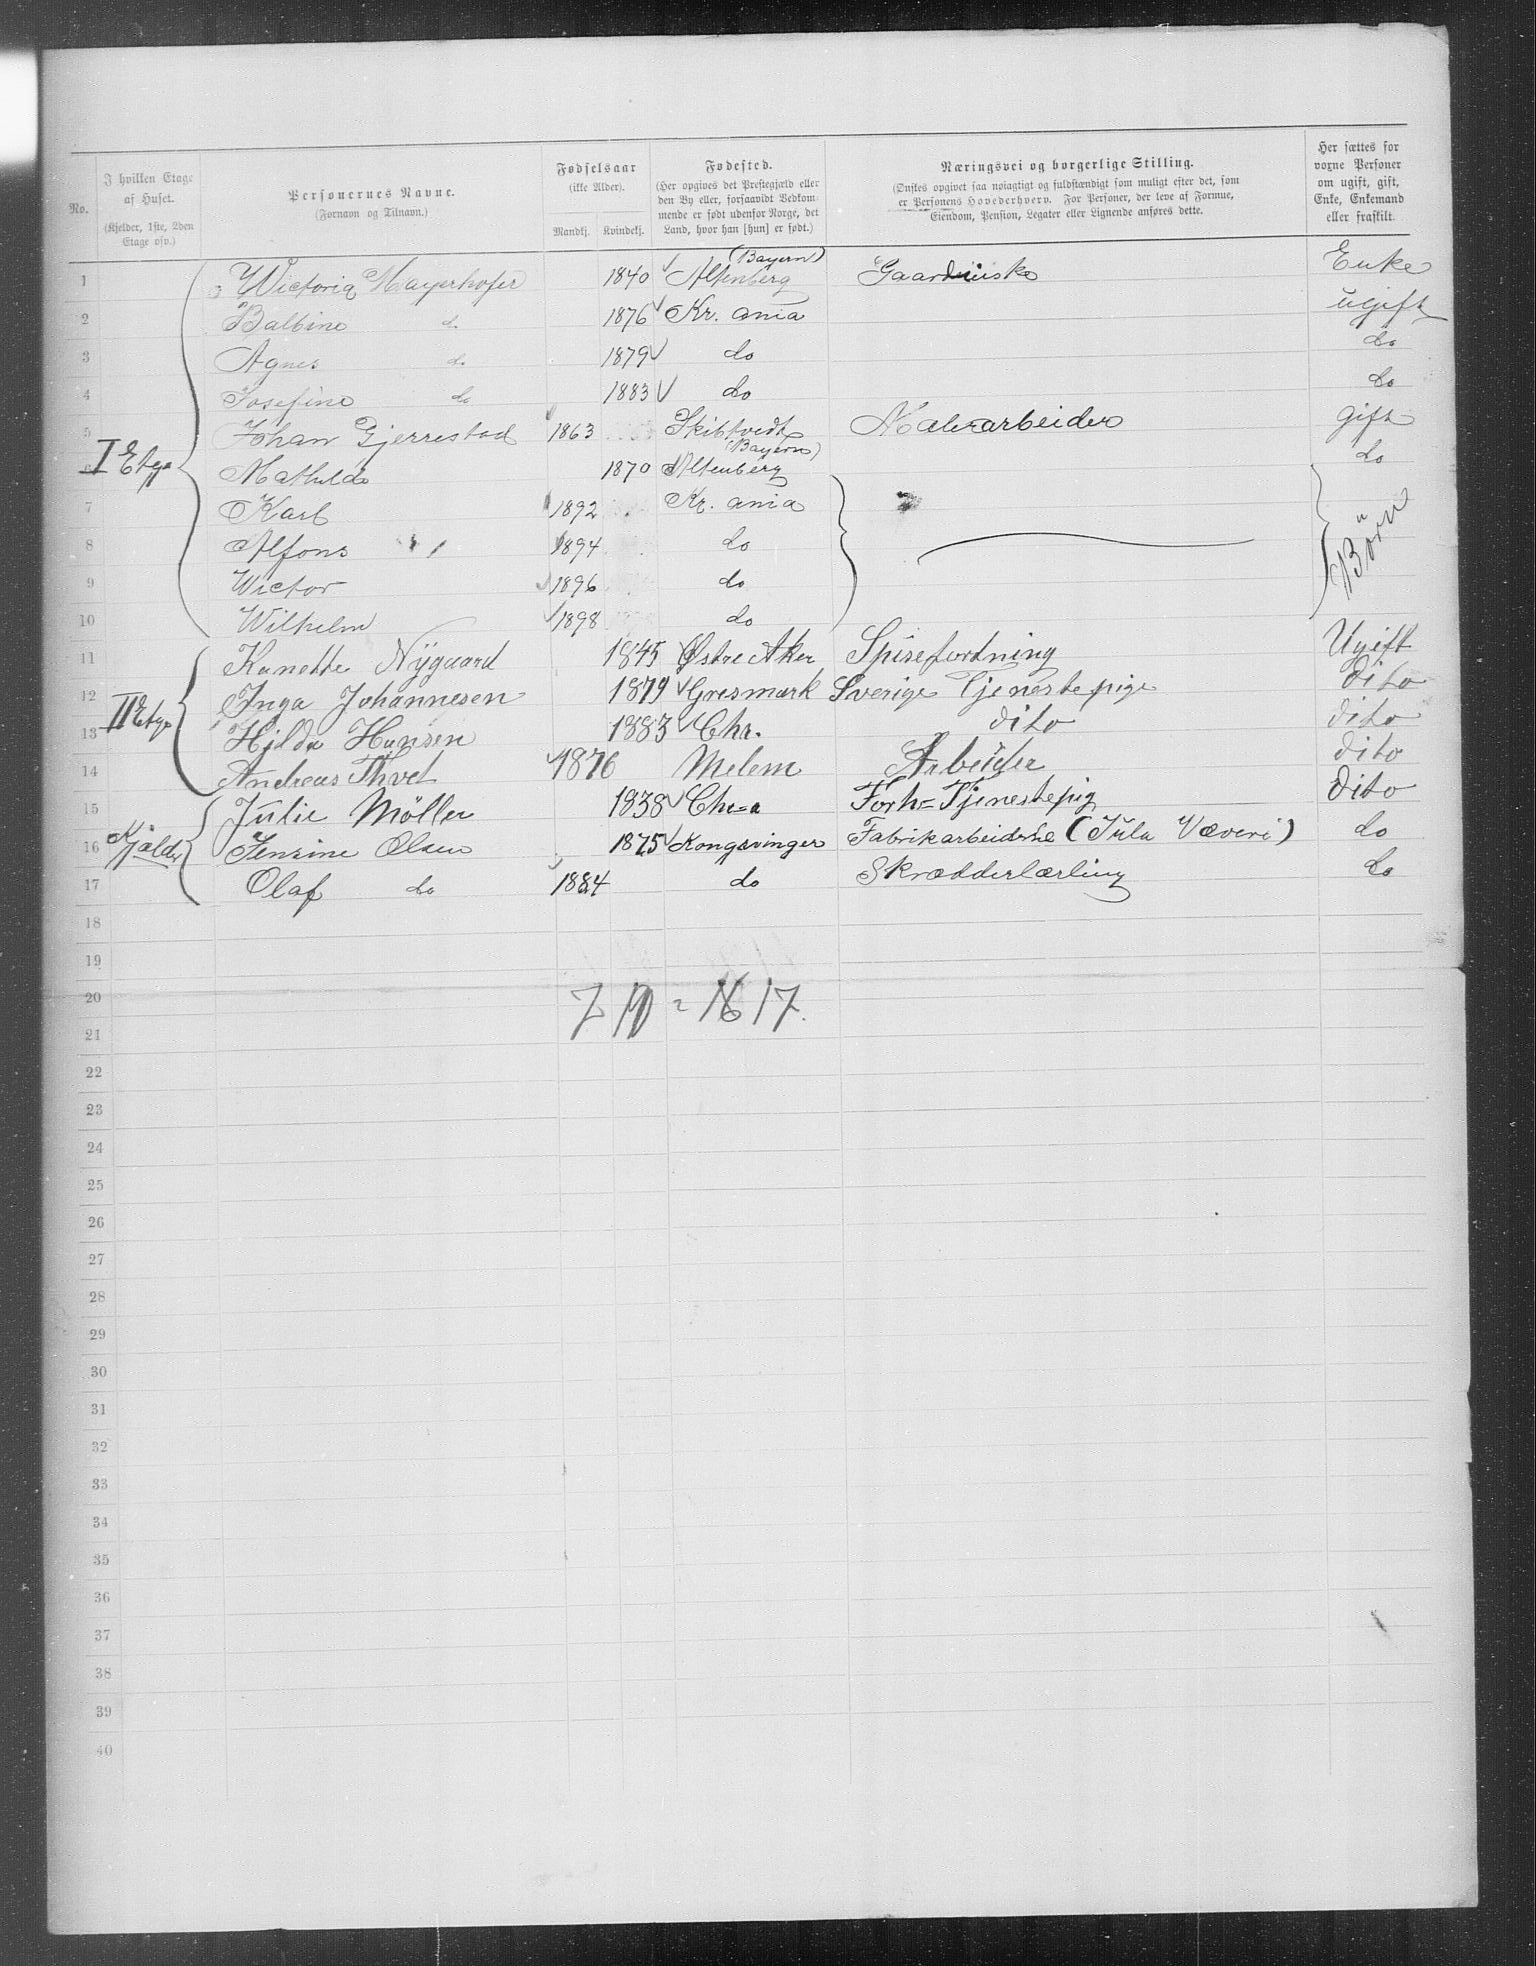 No.
I hvilken Etage af Huset. (Kjelder, 1ste, 2den Etage osv.)
Personernes Navne. (Fornavn og Tilnavn.)
Fødselsaar (ikke Alder). Mandkj. Kvindekj.
Fødested. (Her opgives det Prestegjæld eller den By eller, forsaavidt Vedkommende er født udenfor Norge, det Land, hvor han [hun] er født.)
Næringsvei og borgerlige Stilling. (Ønskes opgivet saa nøiagtigt og fuldstændigt som muligt efter det, som er Personens Hovederhverv. For Personer, der leve af Formue, Eiendom, Pension, Legater eller Lignende anføres dette.
Her sættes for voxne Personer om ugift, gift, Enke, Enkemand eller fraskilt.
I Etge
1 Wictoria Mayerhofer 1840 Altenberg (Bayern) Enke
2 Balbine do 1876 Kr. ania ugift
3 Agnes do 1879 do do
4 Josefine do 1883 do do
5 Johan Gjerrestad 1863 Skibtvedt Malerarbeider gift
Mathilde 1870 Altenberg (Bayern) do
7 Karl 1892 Kr. ania
8 Alfons 1894 do
9 Wictor 1896 do Børn
10 Wilhelm 1898 do
II Etge
11 Nygaard 1845 Østre Aker Ugift
12 Inga Johannesen 1879 Gresmark Sverige Tjenestepige dito
13 Hilda Hansen 1883 Chr. dito dito
14 Andreas 1876 Melem Arbeider dito
Kjælder
15 Julie Möller 1838 Chr=a Forh= Tjenestepig dito
16 Jensine Olsen 1875 Kongsvinger Fabrikarbeiderske (Jula Væveri) do
17 Olaf do 1884 do Skrædderlærling do
18
19
20
7 10 = 16 17.
21
22
23
24
25
26
27
28
29
30
31
32
33
34
35
36
37
38
39
40